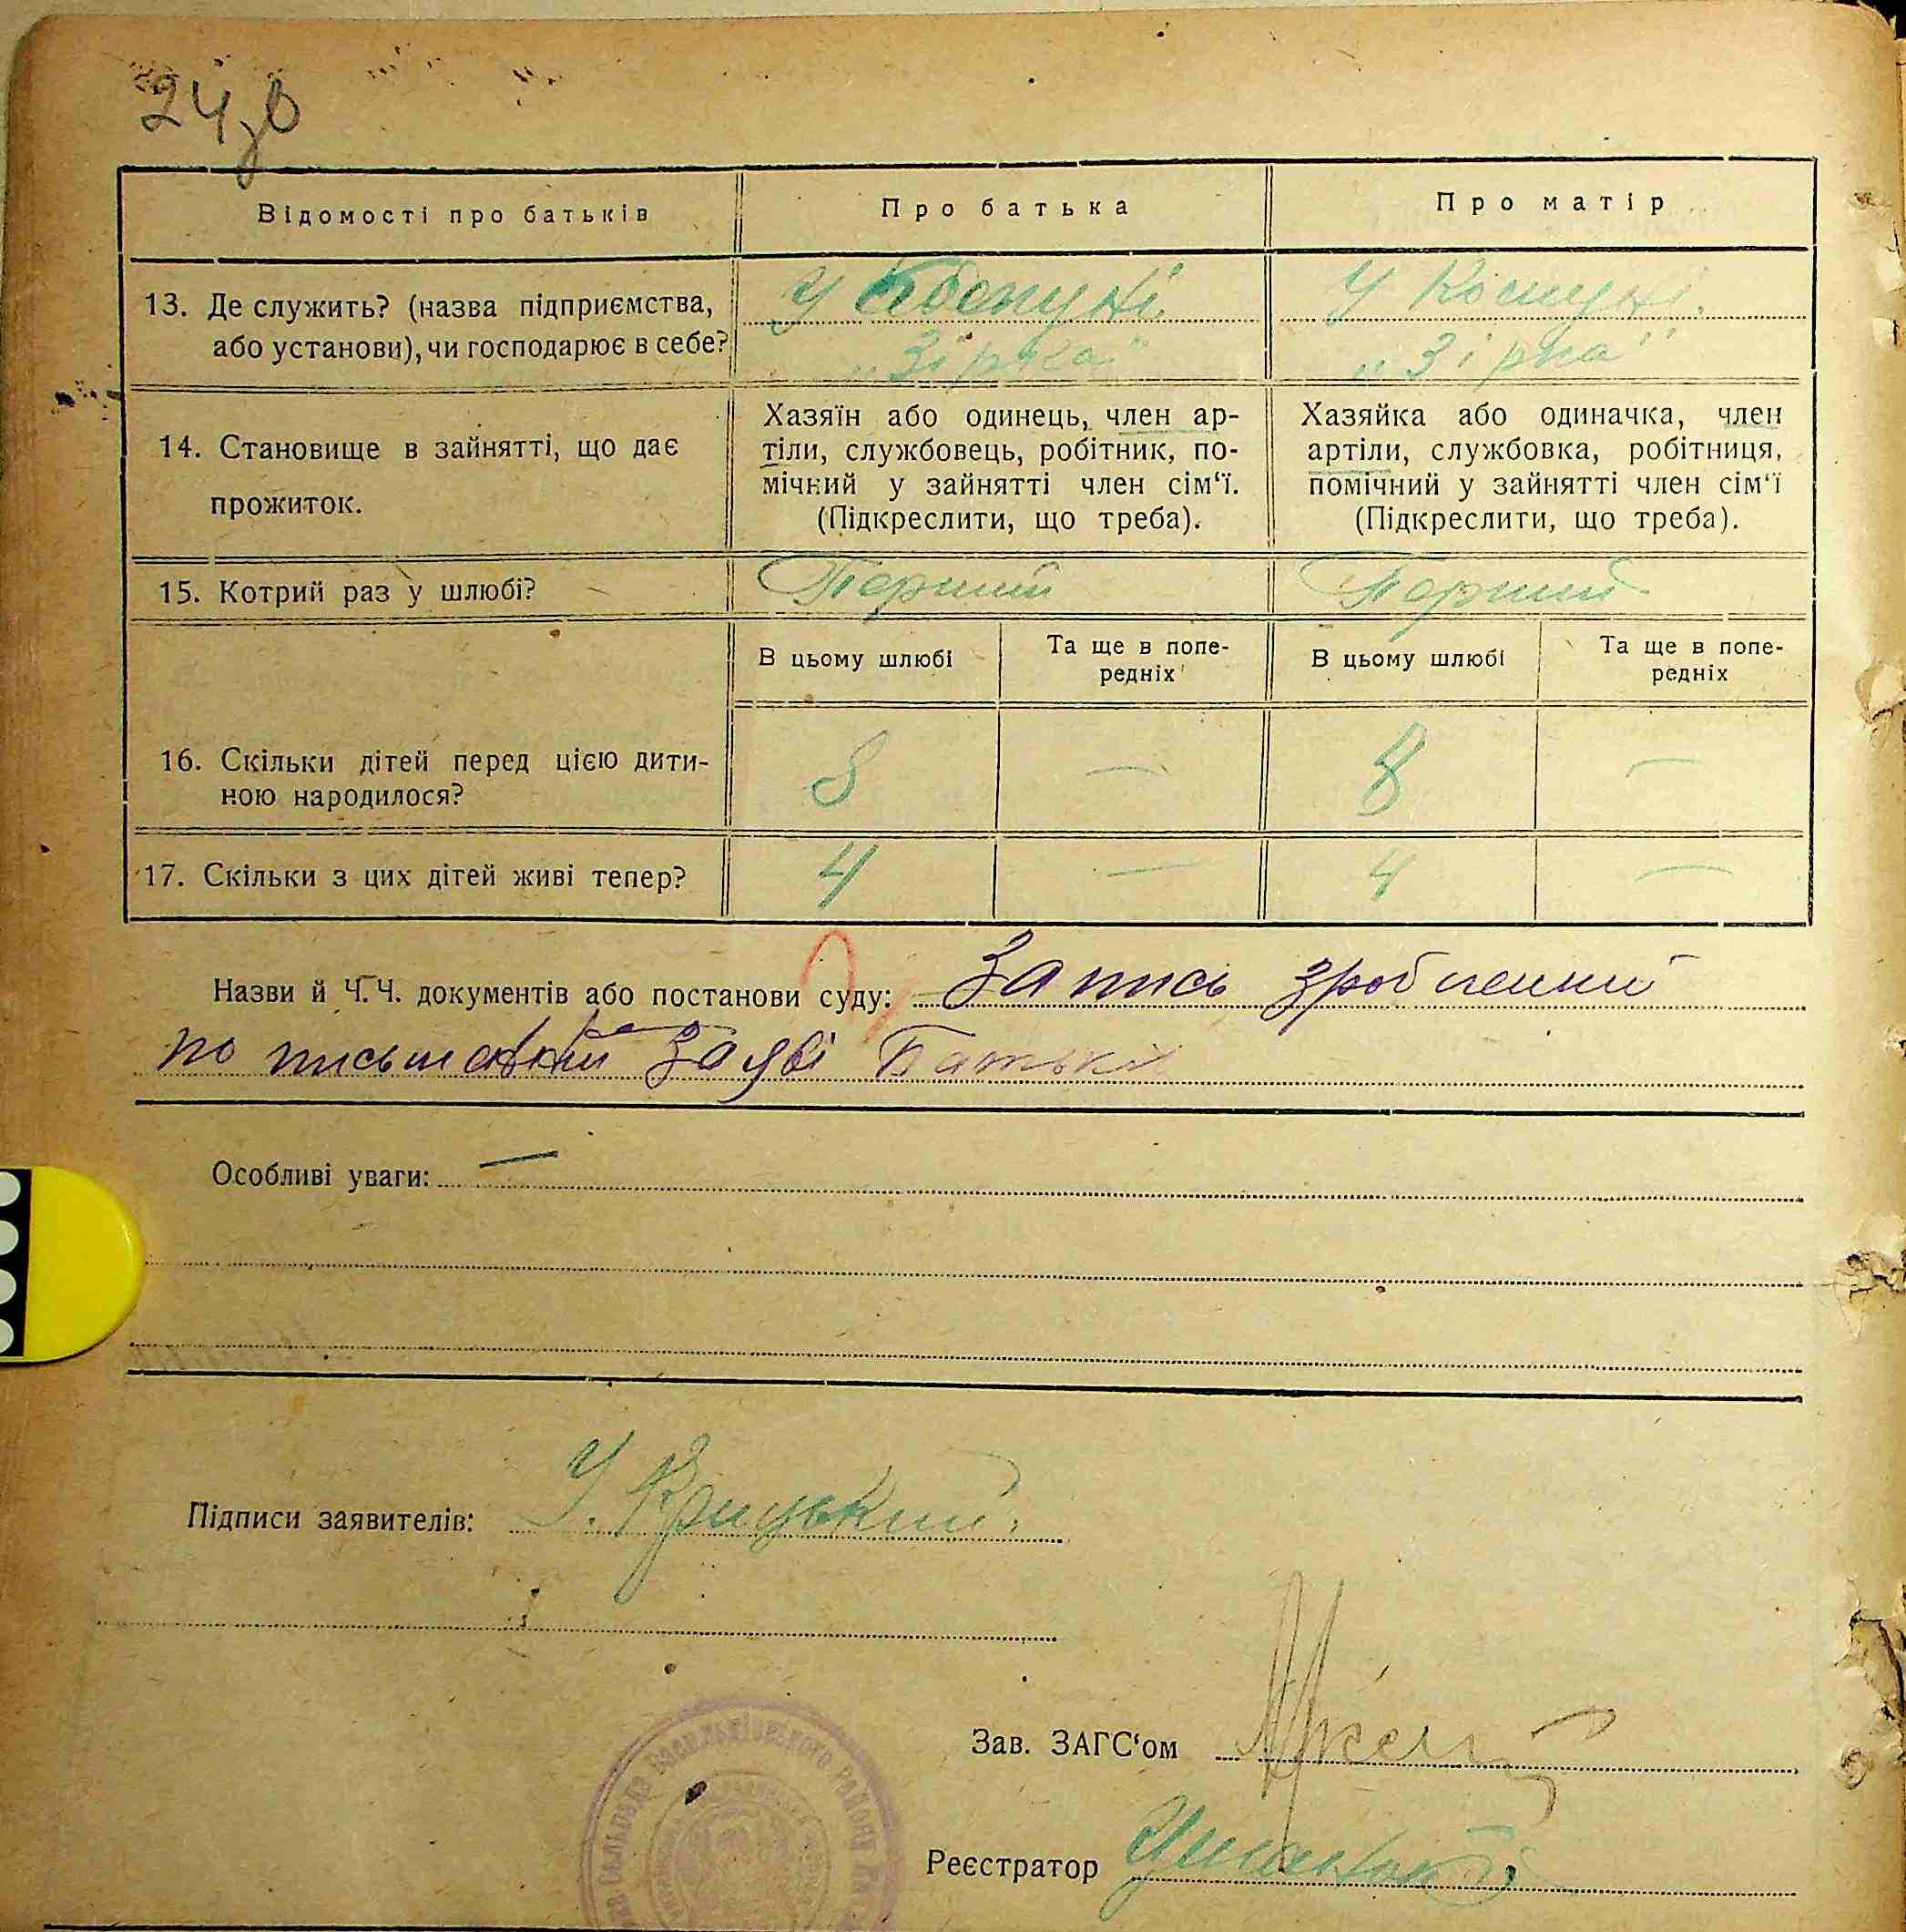 24зв
Відомості про батьків
Про батька
Про матір
13. Де служить? (назва підприємства,
або установи), чи господарює в себе?
У
"Зірка"
У
"Зірка"
14. Становище в зайнятті, що дає
прожиток.
Хазяїн або одинець, член ар-
тіли, службовець, робітник, по-
мічний у зайнятті член сім'ї.
(Підкреслити, що треба).
Хазяйка або одиначка, член
артіли, службовка, робітниця,
помічний у зайнятті член сім'ї
(Підкреслити, що треба).
15. Котрий раз у шлюбі?
Перший
Перший
В цьому шлюбі
Та ще в попе-
редніх
В цьому шлюбі
Та ще в попе-
редніх
16. Скільки дітей перед цією дити-
ною народилося?
8 — 8 —
17. Скільки з цих дітей живі тепер?
4 — 4 —
Назви й Ч.Ч. документів або постанови суду: Запись зроблений
по заяві
Особливі уваги: —
Підписи заявителів: У. Крицький.
Зав. ЗАГС'ом
Реєстратор
Васильківського району